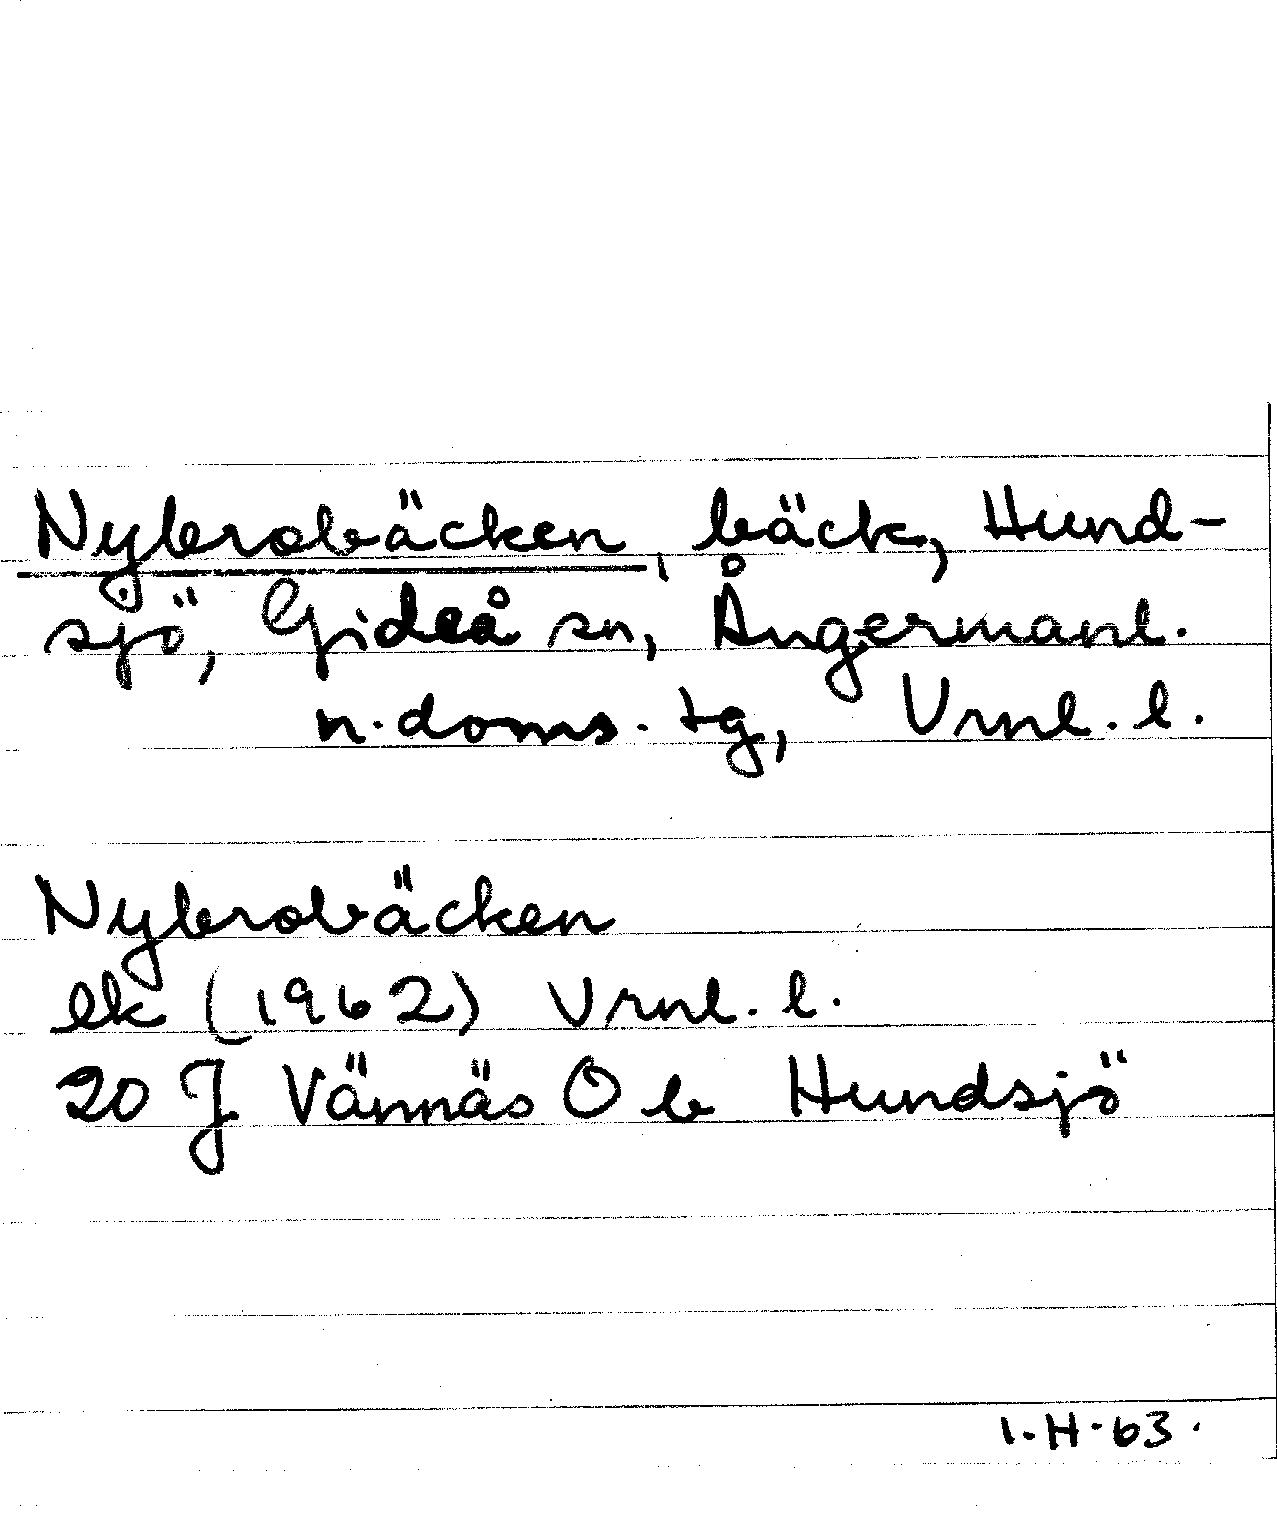 Nybrobäcken, bäck, Hund-
sjö, Gideå sn, Ångermanl.
n. doms. tg, Vrnl. l.
Nybrobäcken
ek (1962) Vrnl. l.
20 J Vännäs O b Hundsjö
I.H.63.